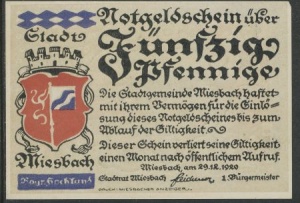 Notgeldschein über
Stadt
Fünfzig
Pfennige
Die Stadtgemeinde Miesbach haftet
mit ihrem Vermögen für die Einlö-
sung dieses Notgeldscheines bis zum
Ablauf der Giltigkeit
Dieser Schein verliert seine Giltigkeit
einen Monat nach öffentlichem Aufruf.
Miesbach
Miesbach, am 29.12.1920
Bayr. Hochland
Stadtrat Miesbach
1. Bürgermeister
DRUCK: MIESBACHER ANZEIGER